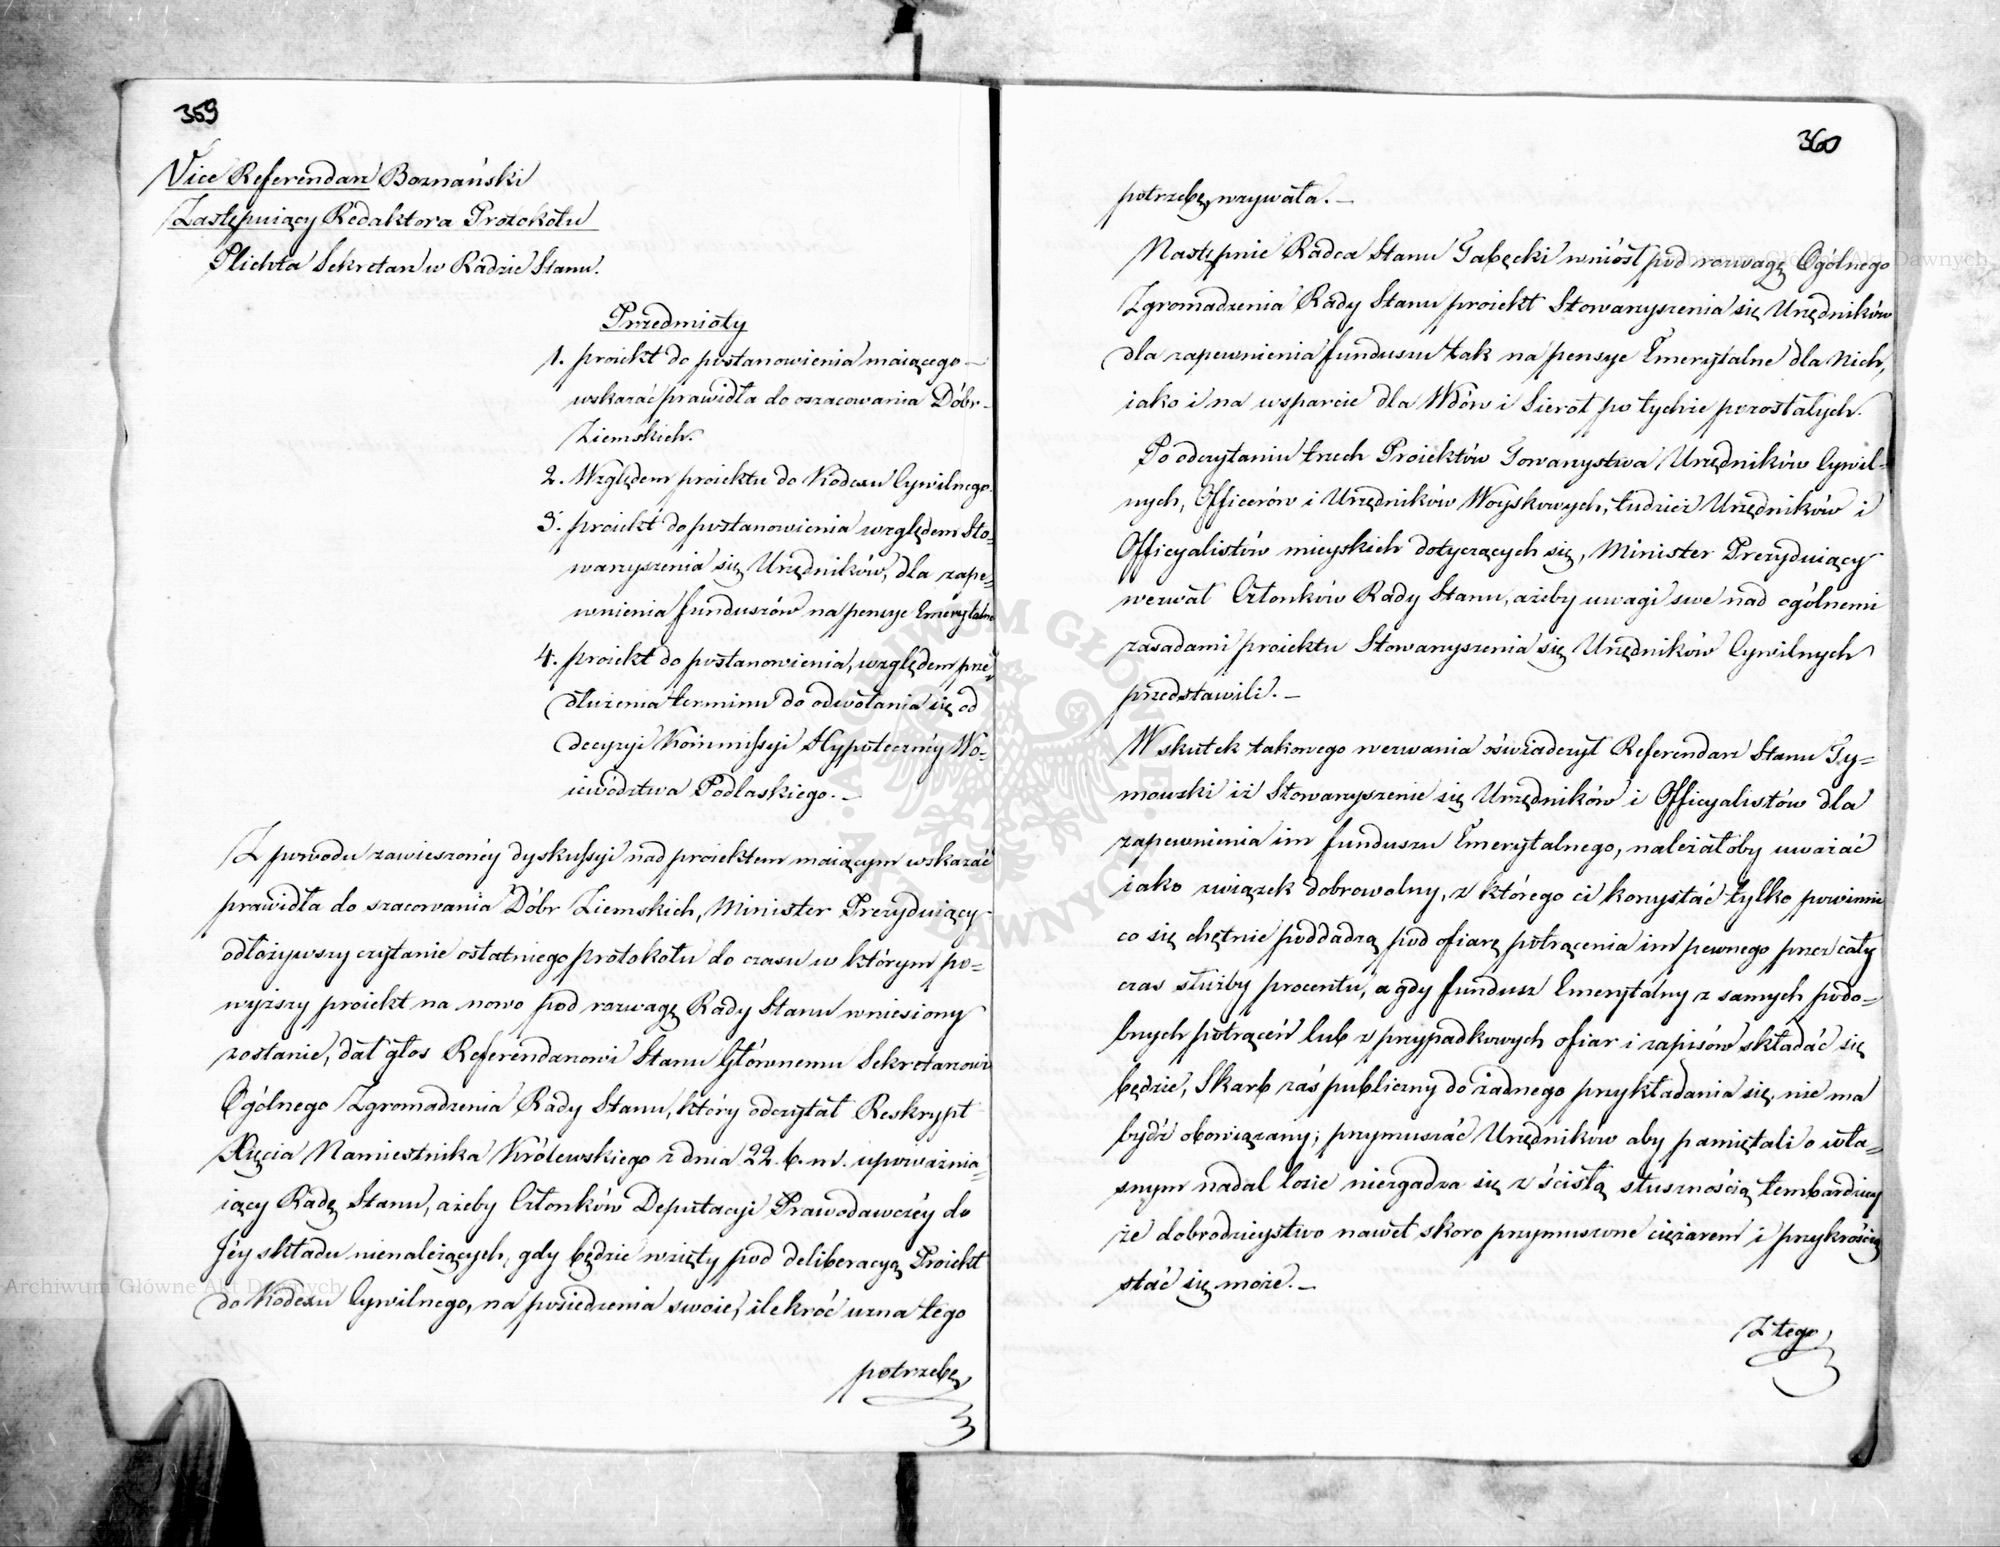 359
Vice Referendarz Boznański
Zastępuiący Redaktora Protokołu
Plichta Sekretarz w Radzie Stanu.
Przedmioty
1. proiekt do postanowienia maiącego
wskazać prawidła do oszacowania Dóbr
Ziemskich.
2. Względem proiektu do Kodexu Cywilnego.
3. proiekt do postanowienia względem Sto-
warzyszenia się Urzędników, dla zape-
wnienia funduszów na pensye Emerytalne
4. proiekt do postanowienia, względem prze-
dłużenia terminu do odwołania się od
decyzyi Kommissyi Hypoteczney Wo-
iewództwa Podlaskiego. –
Z powodu zawieszonéy dyskussyi nad proiektem maiącym wskazać
prawidła do szacowania Dóbr Ziemskich, Minister Prezyduiący
odłożywszy czytanie ostatniego protokołu do czasu w którym po-
wyższy proiekt na nowo pod rozwagę Rady Stanu wniesiony
zostanie, dał głos Referendarzowi Stanu Głównemu Sekretarzowi
Ogólnego Zgromadzenia Rady Stanu, który odczytał Reskrypt
Xięcia Namiestnika Królewskiego z dnia 22. b. m. upoważnia-
iący Radę Stanu, ażeby Członków Deputacyi Prawodawczéy do
Jéy składu nienależących, gdy będzie wzięty pod deliberacyą Proiekt
do Kodexu Cywilnego, na posiedzenia swoie, ilekróć uzna tego
potrzebę
360
potrzebę, wzywała. –
Następnie Radca Stanu Gałęcki wniósł pod rozwagę Ogólnego
Zgromadzenia Rady Stanu proiekt Stowarzyszenia się Urzędników
dla zapewnienia funduszu tak na pensye Emerytalne dla Nich,
iako i na wsparcie dla Wdów i Sierot po tychże pozostałych.
Po odczytaniu trzech Proiektów Towarzystwa Urzędników Cywil-
nych, Officerów i Urzędników Woyskowych, tudzież Urzędników i
Officyalistów mieyskich dotyczących się, Minister Prezyduiący
wezwał Członków Rady Stanu, ażeby uwagi swe nad ogólnemi
zasadami proiektu Stowarzyszenia się Urzędników Cywilnych
przedstawili. –
W skutek takowego wezwania oświadczył Referendarz Stanu Ty-
mowski iż Stowarzyszenie się Urzędników i Officyalistów dla
zapewnienia im funduszu Emerytalnego, należałoby uważać
iako związek dobrowolny, z którego ci korzystać tylko powinni
co się chętnie poddadzą pod ofiarę potrącenia im pewnego przez cały
czas służby procentu, a gdy fundusz Emerytalny z samych podo-
bnych potrąceń lub z przypadkowych ofiar i zapisów składać się
będzie, Skarb zaś publiczny do żadnego przykładania się, nie ma
bydź obowiązany; przymuszać Urzędników aby pamiętali o wła-
snym nadal losie niezgadza się z ścisłą słusznością tembardziey
że dobrodzieystwo nawet, skoro przymuszone ciężarem i przykrością
stać się może. –
Z tego
Archiwum Główne Akt Dawnych
Archiwum Główne Akt Dawnych
ARCHIWUM GŁÓWNE AKT DAWNYCH